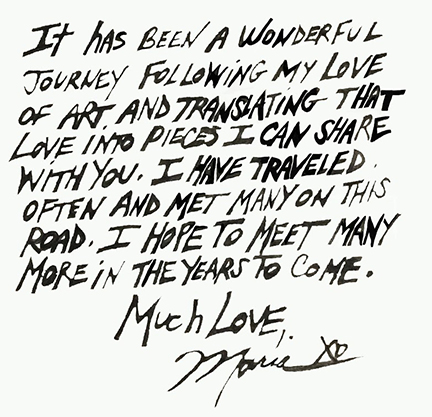 It has BEEN A WONDERFUL
JOURNEY FOLLOWING MY LOVE
OF ART, AND TRANSLATING THAT
LOVE INTO PIECES I CAN SHARE
WITH YOU. I HAVE TRAVELED
OFTEN AND MET MANY ON THIS
ROAD. I HOPE TO MEET MANY
MORE iN THE YEARS TO COME.
Much LOVE,
Maria XO